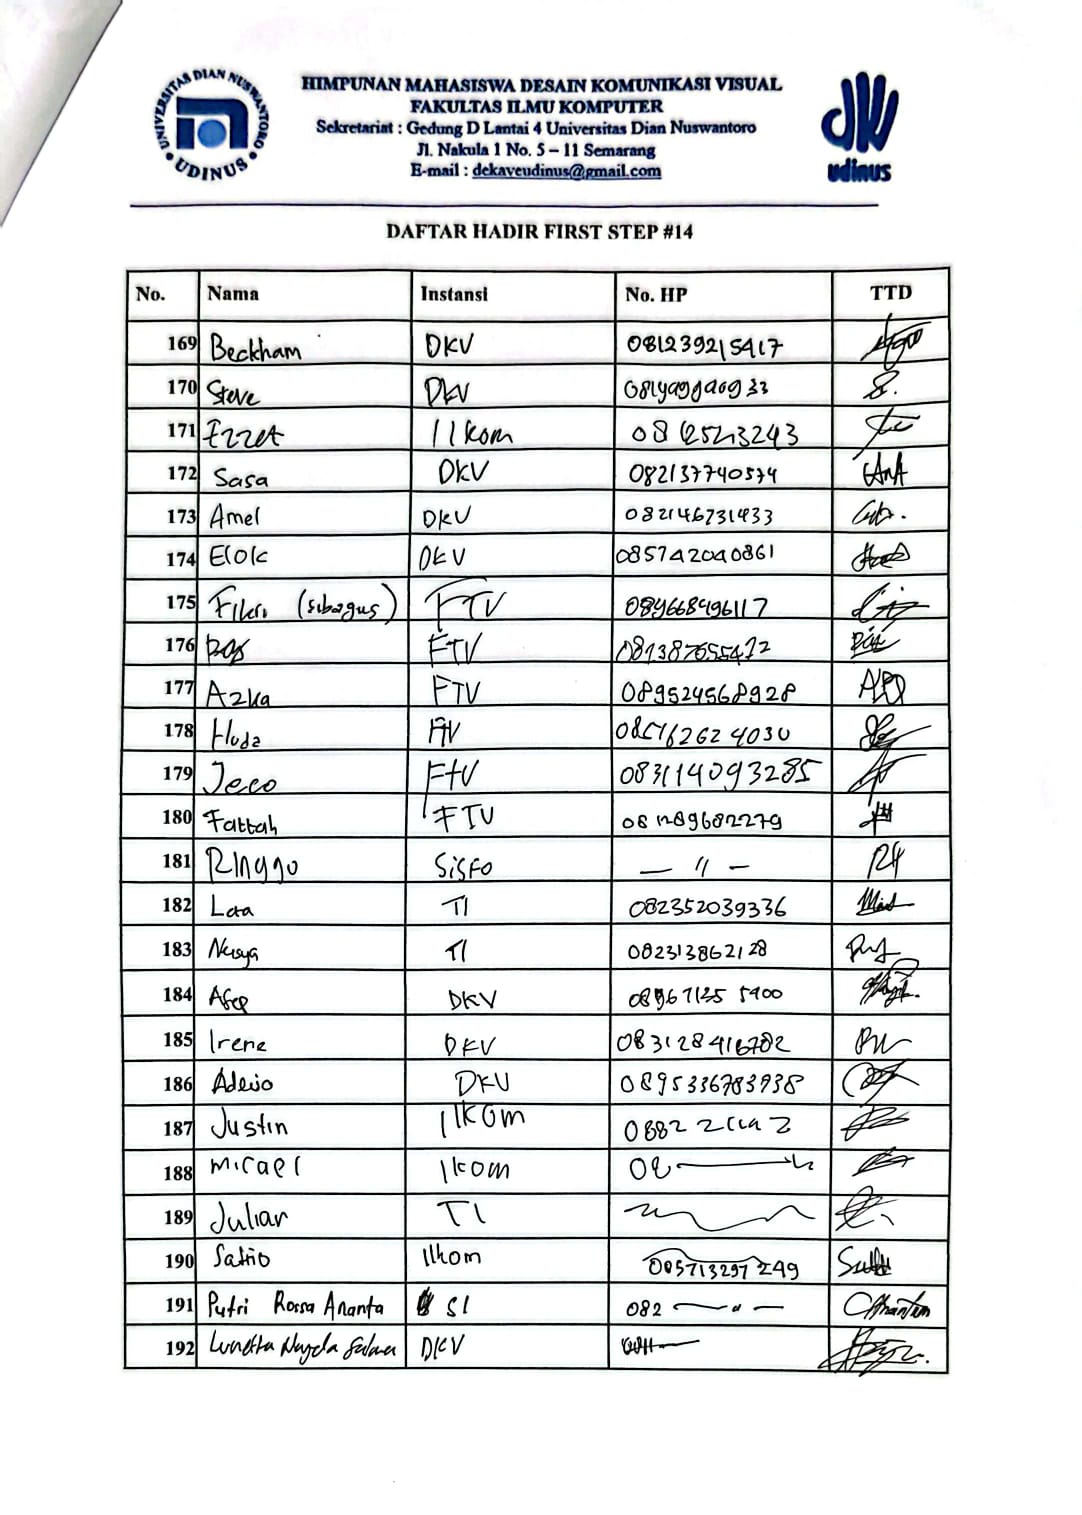 UNIVERSITAS DIAN NUSWANTORO
• UDINUS •
HIMPUNAN MAHASISWA DESAIN KOMUNIKASI VISUAL
FAKULTAS ILMU KOMPUTER
Sekretariat : Gedung D Lantai 4 Universitas Dian Nuswantoro
Jl. Nakula 1 No. 5 – 11 Semarang
E-mail : dekaveudinus@gmail.com
udinus
DAFTAR HADIR FIRST STEP #14
No. Nama Instansi No. HP TTD
169 Beckham DKV 081239215417
170 Steve DKV
171 Izzet Ilkom
172 Sasa DKV 082137740574
173 Amel DKV 082146731433
174 Elok DKV 085742040861
175 Fikri (sibagus) FTV 089668496117
176 FTV
177 Azka FTV 089524568928
178 Huda FTV
179 Jeco FTV 083114093285
180 Fattah FTV
181 Ringgo SISFO — // —
182 TI 082352039336
183 TI 082313862128
184 DKV
185 Irene DKV 083128416702
186 DKV 0895336783938
187 Justin ILKOM
188 Micael Ikom
189 Julian TI
190 Satrio Ilkom
191 Putri Rossa Ananta SI 082
192 DKV